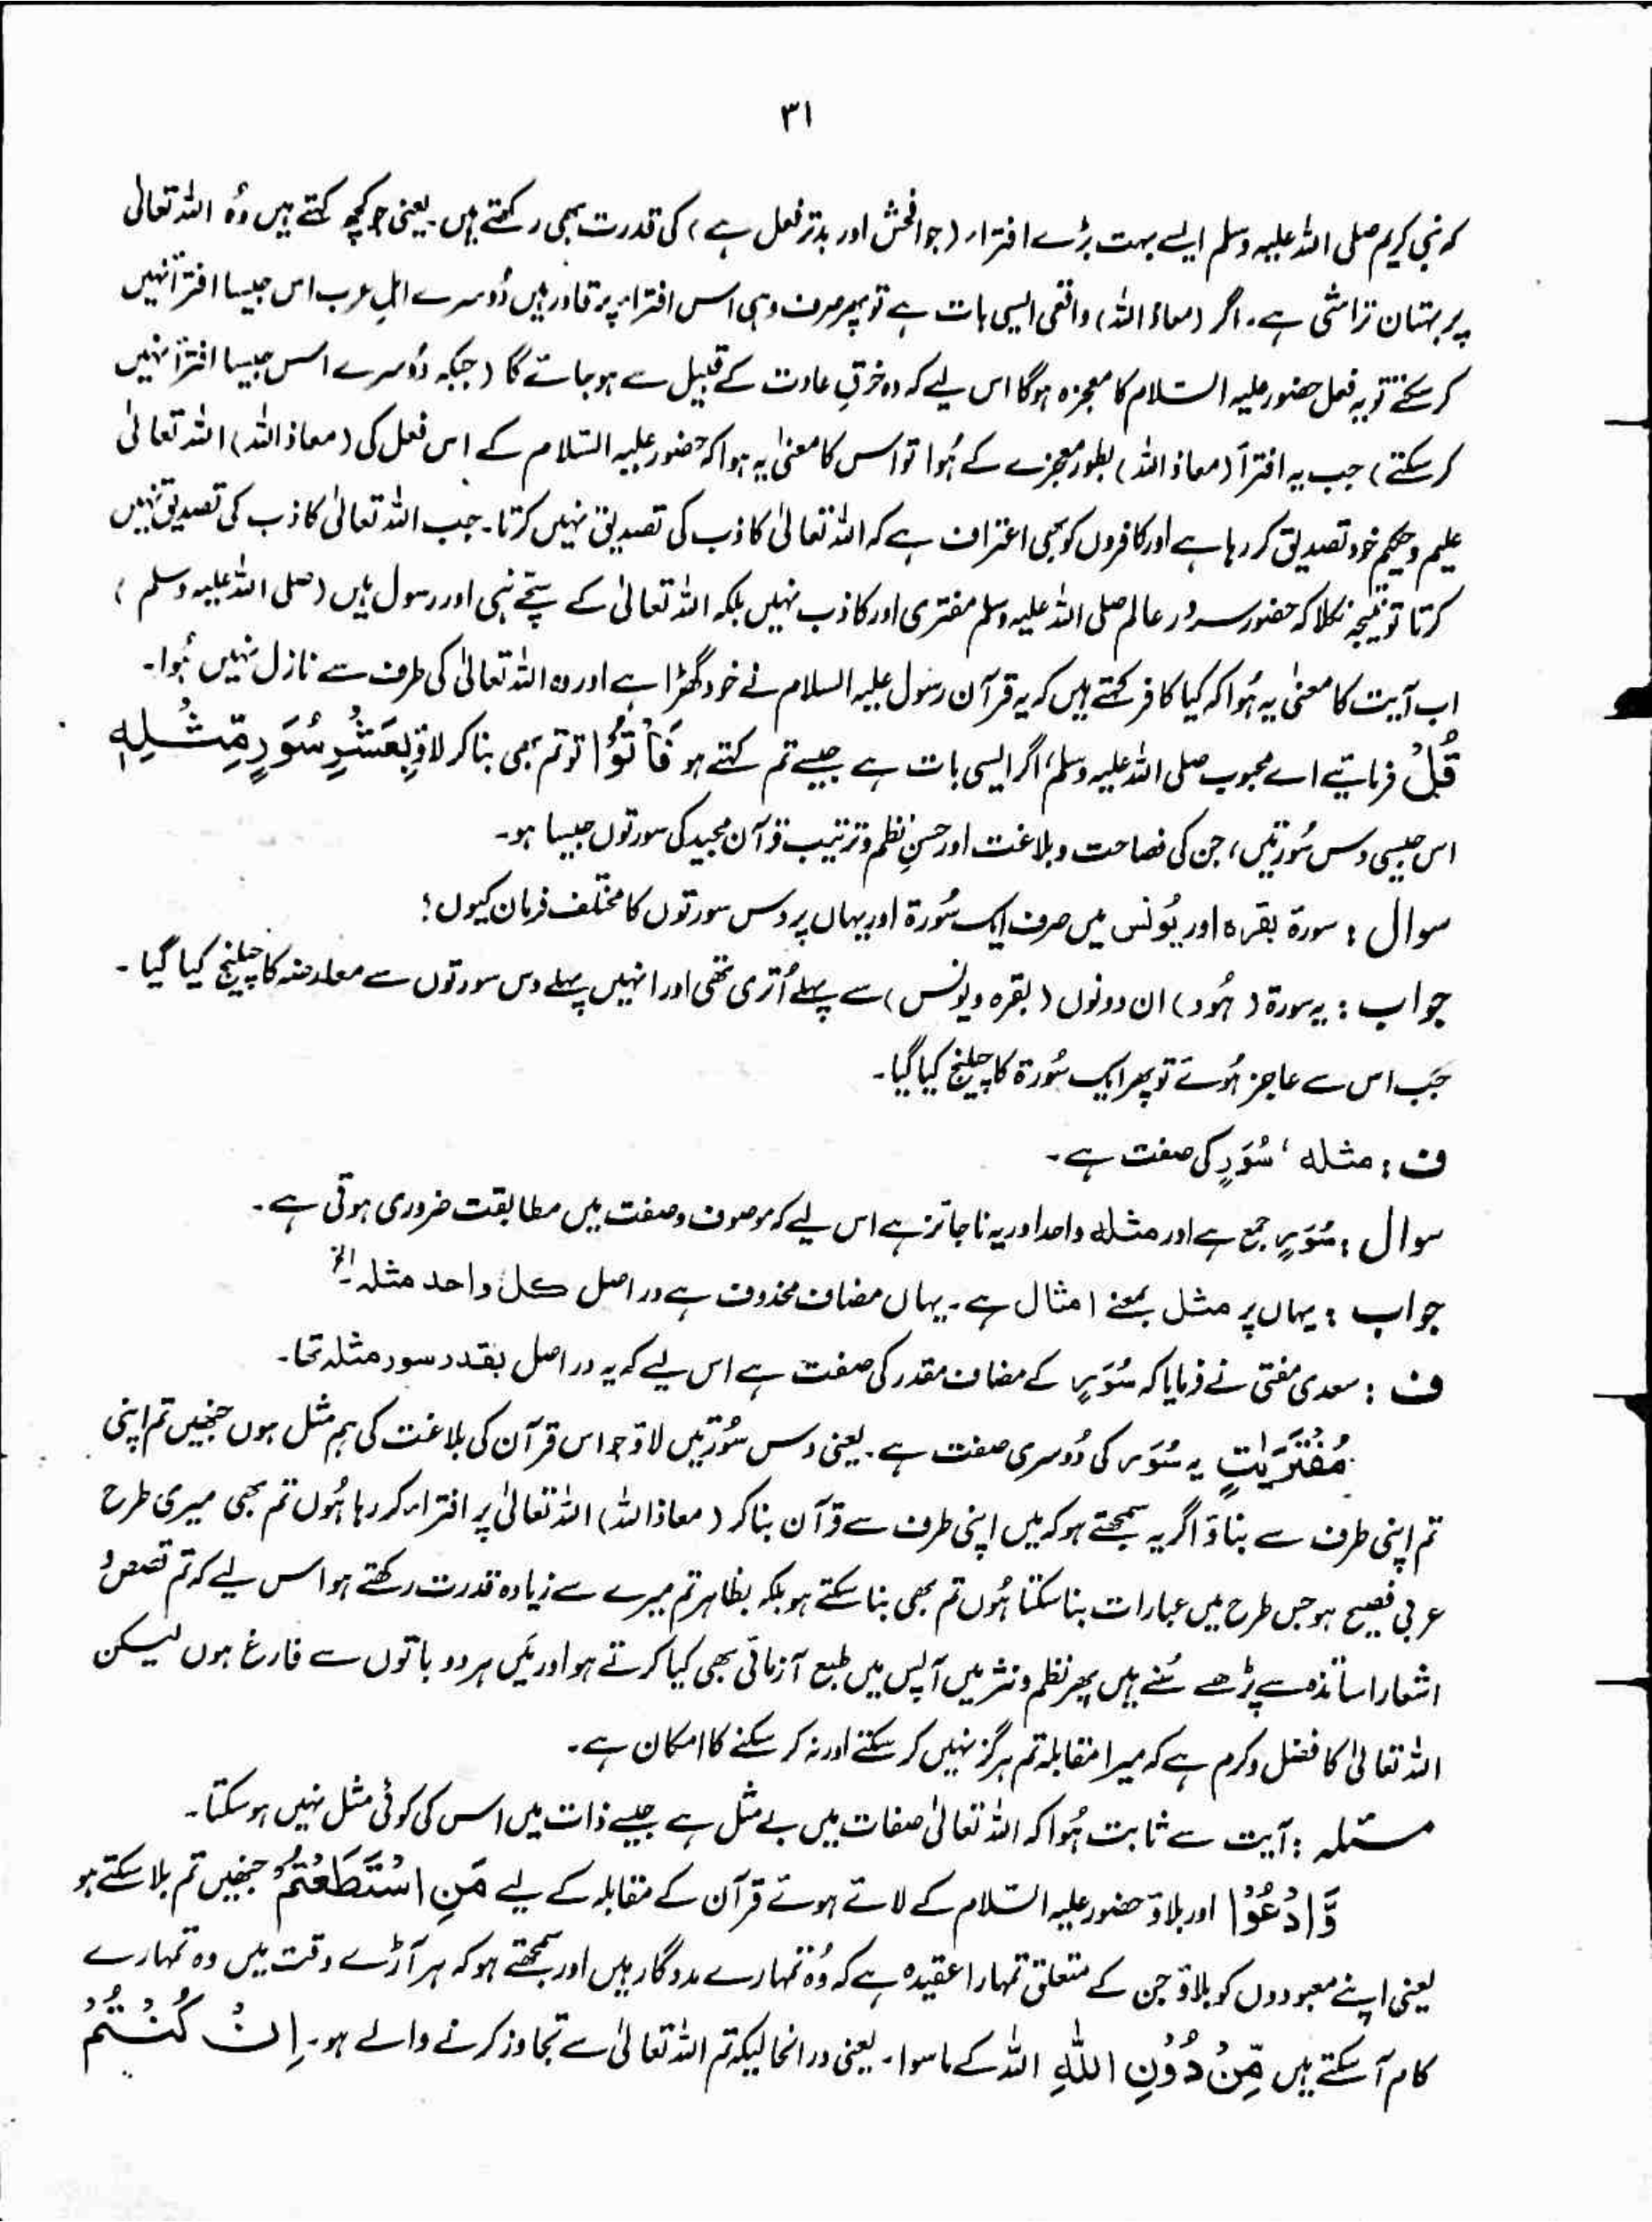 ۳۱
کہ نبی کریم صلی اللہ علیہ وسلم ایسے بہت بڑے افتراء (جو افحش اور بدتر فعل ہے) کی قدرت بھی رکھتے ہیں۔ یعنی جو کچھ کہتے ہیں وُہ اللہ تعالیٰ
پر بہتان تراشی ہے۔ اگر (معاذ اللہ) واقعی ایسی بات ہے تو پھر صرف وہی اس افتراء پر قادر ہیں دُوسرے اہلِ عرب اس جیسا افتراً نہیں
کر سکتے تو یہ فعل حضور علیہ السلام کا معجزہ ہوگا اس لیے کہ وہ خرقِ عادت کے قبیل سے ہو جائے گا (جبکہ دُوسرے اس جیسا افتراً نہیں
کر سکتے) جب یہ افتراً (معاذ اللہ) بطور معجزے کے ہُوا تو اس کا معنیٰ یہ ہوا کہ حضور علیہ السّلام کے اس فعل کی (معاذ اللہ) اللہ تعالیٰ
علیم و حکیم خود تصدیق کر رہا ہے اور کافروں کو بھی اعتراف ہے کہ اللہ تعالیٰ کاذب کی تصدیق نہیں کرتا۔ جب اللہ تعالیٰ کاذب کی تصدیق نہیں
کرتا تو نتیجہ نکلا کہ حضور سرورِ عالم صلی اللہ علیہ وسلم مفتری اور کاذب نہیں بلکہ اللہ تعالیٰ کے سچّے نبی اور رسول ہیں (صلی اللہ علیہ وسلم)
اب آیت کا معنیٰ یہ ہُوا کہ کیا کافر کہتے ہیں کہ یہ قرآن رسول علیہ السلام نے خود گھڑا ہے اور وہ اللہ تعالیٰ کی طرف سے نازل نہیں ہُوا۔
قُلْ فرمائیے اے محبوب صلی اللہ علیہ وسلم، اگر ایسی بات ہے جیسے تم کہتے ہو فَاْتُوْا تو تم بھی بنا کر لاؤ بِعَشْرِ سُوَرٍ مِّثْلِهٖ
اس جیسی دس سُورتیں، جن کی فصاحت و بلاغت اور حسنِ نظم و ترتیب قرآن مجید کی سورتوں جیسا ہو۔
سوال : سورۃ بقرہ اور یُونس میں صرف ایک سُورۃ اور یہاں پر دس سورتوں کا مختلف فرمان کیوں؟
جواب : یہ سورۃ (ہُود) ان دونوں (بقرہ و یونس) سے پہلے اُتری تھی اور انہیں پہلے دس سورتوں سے معارضہ کا چیلنج کیا گیا۔
جب اس سے عاجز ہُوئے تو پھر ایک سُورۃ کا چیلنج کیا گیا۔
ف : مثلہ ، سُوَرٍ کی صفت ہے۔
سوال : سُوَرٍ جمع ہے اور مثلہ واحد اور یہ ناجائز ہے اس لیے کہ موصوف و صفت میں مطابقت ضروری ہوتی ہے۔
جواب : یہاں پر مثل بمعنے امثال ہے۔ یہاں مضاف محذوف ہے در اصل کل واحد مثلہ الخ
ف : سعدی مفتی نے فرمایا کہ سُوَرٍ کے مضاف مقدر کی صفت ہے اس لیے کہ یہ در اصل بقدر سور مثلہ تھا۔
مُفْتَرَیٰتٍ یہ سُوَر کی دُوسری صفت ہے۔ یعنی دس سُورتیں لاؤ جو اس قرآن کی بلاغت کی ہم مثل ہوں جنھیں تم اپنی
تم اپنی طرف سے بناؤ اگر یہ سمجھتے ہو کہ میں اپنی طرف سے قرآن بنا کر (معاذ اللہ) اللہ تعالیٰ پر افتراء کر رہا ہُوں تم بھی میری طرح
عربی فصیح ہو جس طرح میں عبارات بنا سکتا ہُوں تم بھی بنا سکتے ہو بلکہ بظاہر تم میرے سے زیادہ قدرت رکھتے ہو اس لیے کہ تم قصص و
اشعار اساتذہ سے پڑھے سُنے ہیں پھر نظم و نثر میں آپس میں طبع آزمائی بھی کیا کرتے ہو اور میں ہر دو باتوں سے فارغ ہوں لیکن
اللہ تعالیٰ کا فضل و کرم ہے کہ میرا مقابلہ تم ہرگز نہیں کر سکتے اور نہ کر سکنے کا امکان ہے۔
مسئلہ : آیت سے ثابت ہُوا کہ اللہ تعالیٰ صفات میں بے مثل ہے جیسے ذات میں اس کی کوئی مثل نہیں ہو سکتا۔
وَّادْعُوْا اور بلاؤ حضور علیہ السّلام کے لائے ہوئے قرآن کے مقابلہ کے لیے مَنِ اسْتَطَعْتُمْ جنھیں تم بلا سکتے ہو
یعنی اپنے معبودوں کو بلاؤ جن کے متعلق تمہارا عقیدہ ہے کہ وُہ تمہارے مددگار ہیں اور سمجھتے ہو کہ ہر آڑے وقت میں وہ تمہارے
کام آ سکتے ہیں مِّنْ دُوْنِ اللّٰهِ اللہ کے ماسوا۔ یعنی درانحالیکہ تم اللہ تعالیٰ سے تجاوز کرنے والے ہو۔ اِنْ كُنْتُمْ